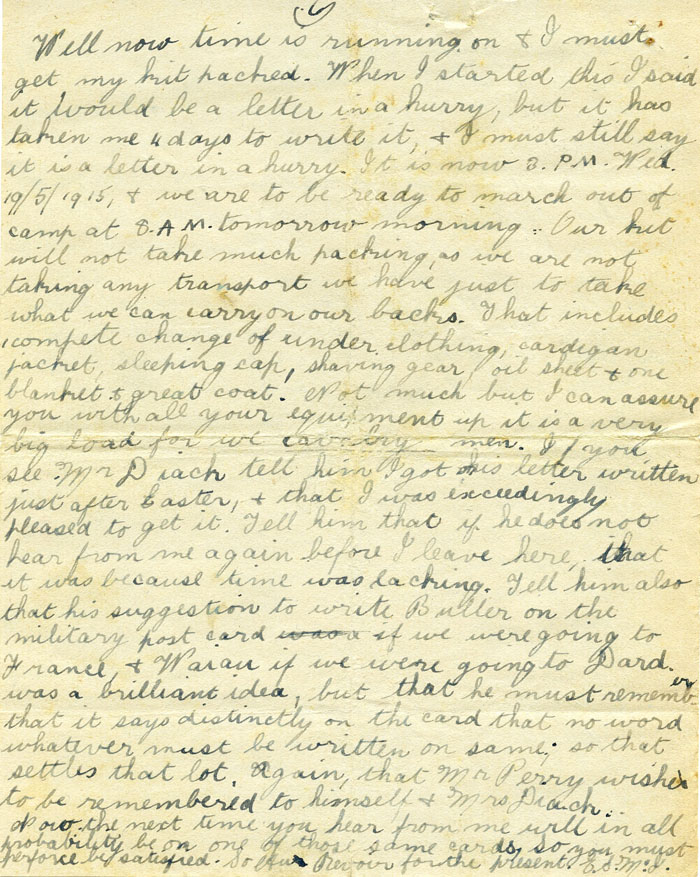 6
Well now time is running on & I must
get my kit packed. When I started this I said
it would be a letter in a hurry, but it has
taken me 4 days to write it, & I must still say
it is a letter in a hurry. It is now 3. P.M. Wed.
19/5/1915, & we are to be ready to march out of
camp at 8. A.M. tomorrow morning. Our kit
will not take much packing, as we are not
taking any transport we have just to take
what we can carry on our backs. That includes
compete change of under clothing, cardigan
jacket, sleeping cap, shaving gear, oil sheet & one
blanket & great coat. Not much but I can assure
you with all your equipment up it is a very
big load for we cavalry men. If you
see Mr Diack tell him I got his letter written
just after Easter, & that I was exceedingly
pleased to get it. Tell him that if he does not
hear from me again before I leave here, that
it was because time was lacking. Tell him also
that his suggestion to write Buller on the
military post card was a if we were going to
France, & Waiau if we were going to Dard.
was a brilliant idea, but that he must remember
that it says distinctly on the card that no word
whatever must be written on same; so that
settles that lot. Again, that Mr Perry wishes
to be remembered to himself & Mrs Diack.
Now the next time you hear from me will in all
probability be on one of those same cards, so you must
perforce be satisfied. So Au Revoir for the present. E.S. McI.